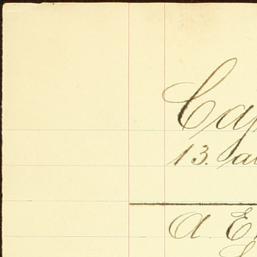 Cap
13. a
A. E.